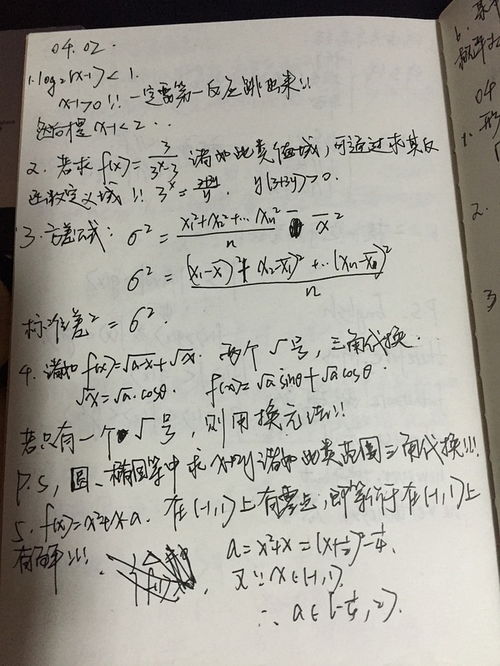 04.02.
1. log₂(x-1) < 1.
x-1>0!! 一定要第一反应跳出来!!
然后才是 x-1<2 ..
2. 若求 f(x) = 3/(3^x-3) 诸如此类值域, 可通过求其反
函数定义域!! 3^x = (3+3y)/y. y(3+3y)>0.
3. 方差公式: σ² = (x₁²+x₂²+...xn²)/n - x̄²
σ² = ((x₁-x̄)²+(x₂-x̄)²+...(xn-x̄)²)/n
标准差² = σ².
4. 诸如 f(x)=√(a-x)+√x. 两个√号, 三角代换.
√x=√a·cosθ. f(x)=√a sinθ+√a cosθ.
若只有一个√号, 则用换元法!!
P.S, 圆、椭圆等中求 x+y 诸如此类范围三角代换!!!
5. f(x)=x²+x-a. 在(-1,1)上有零点, 即等价于在(-1,1)上
有解!!!
a=x²+x=(x+½)²-¼.
又∵x∈(-1,1).
∴ a∈[-¼,2).
04
1.
2.
3